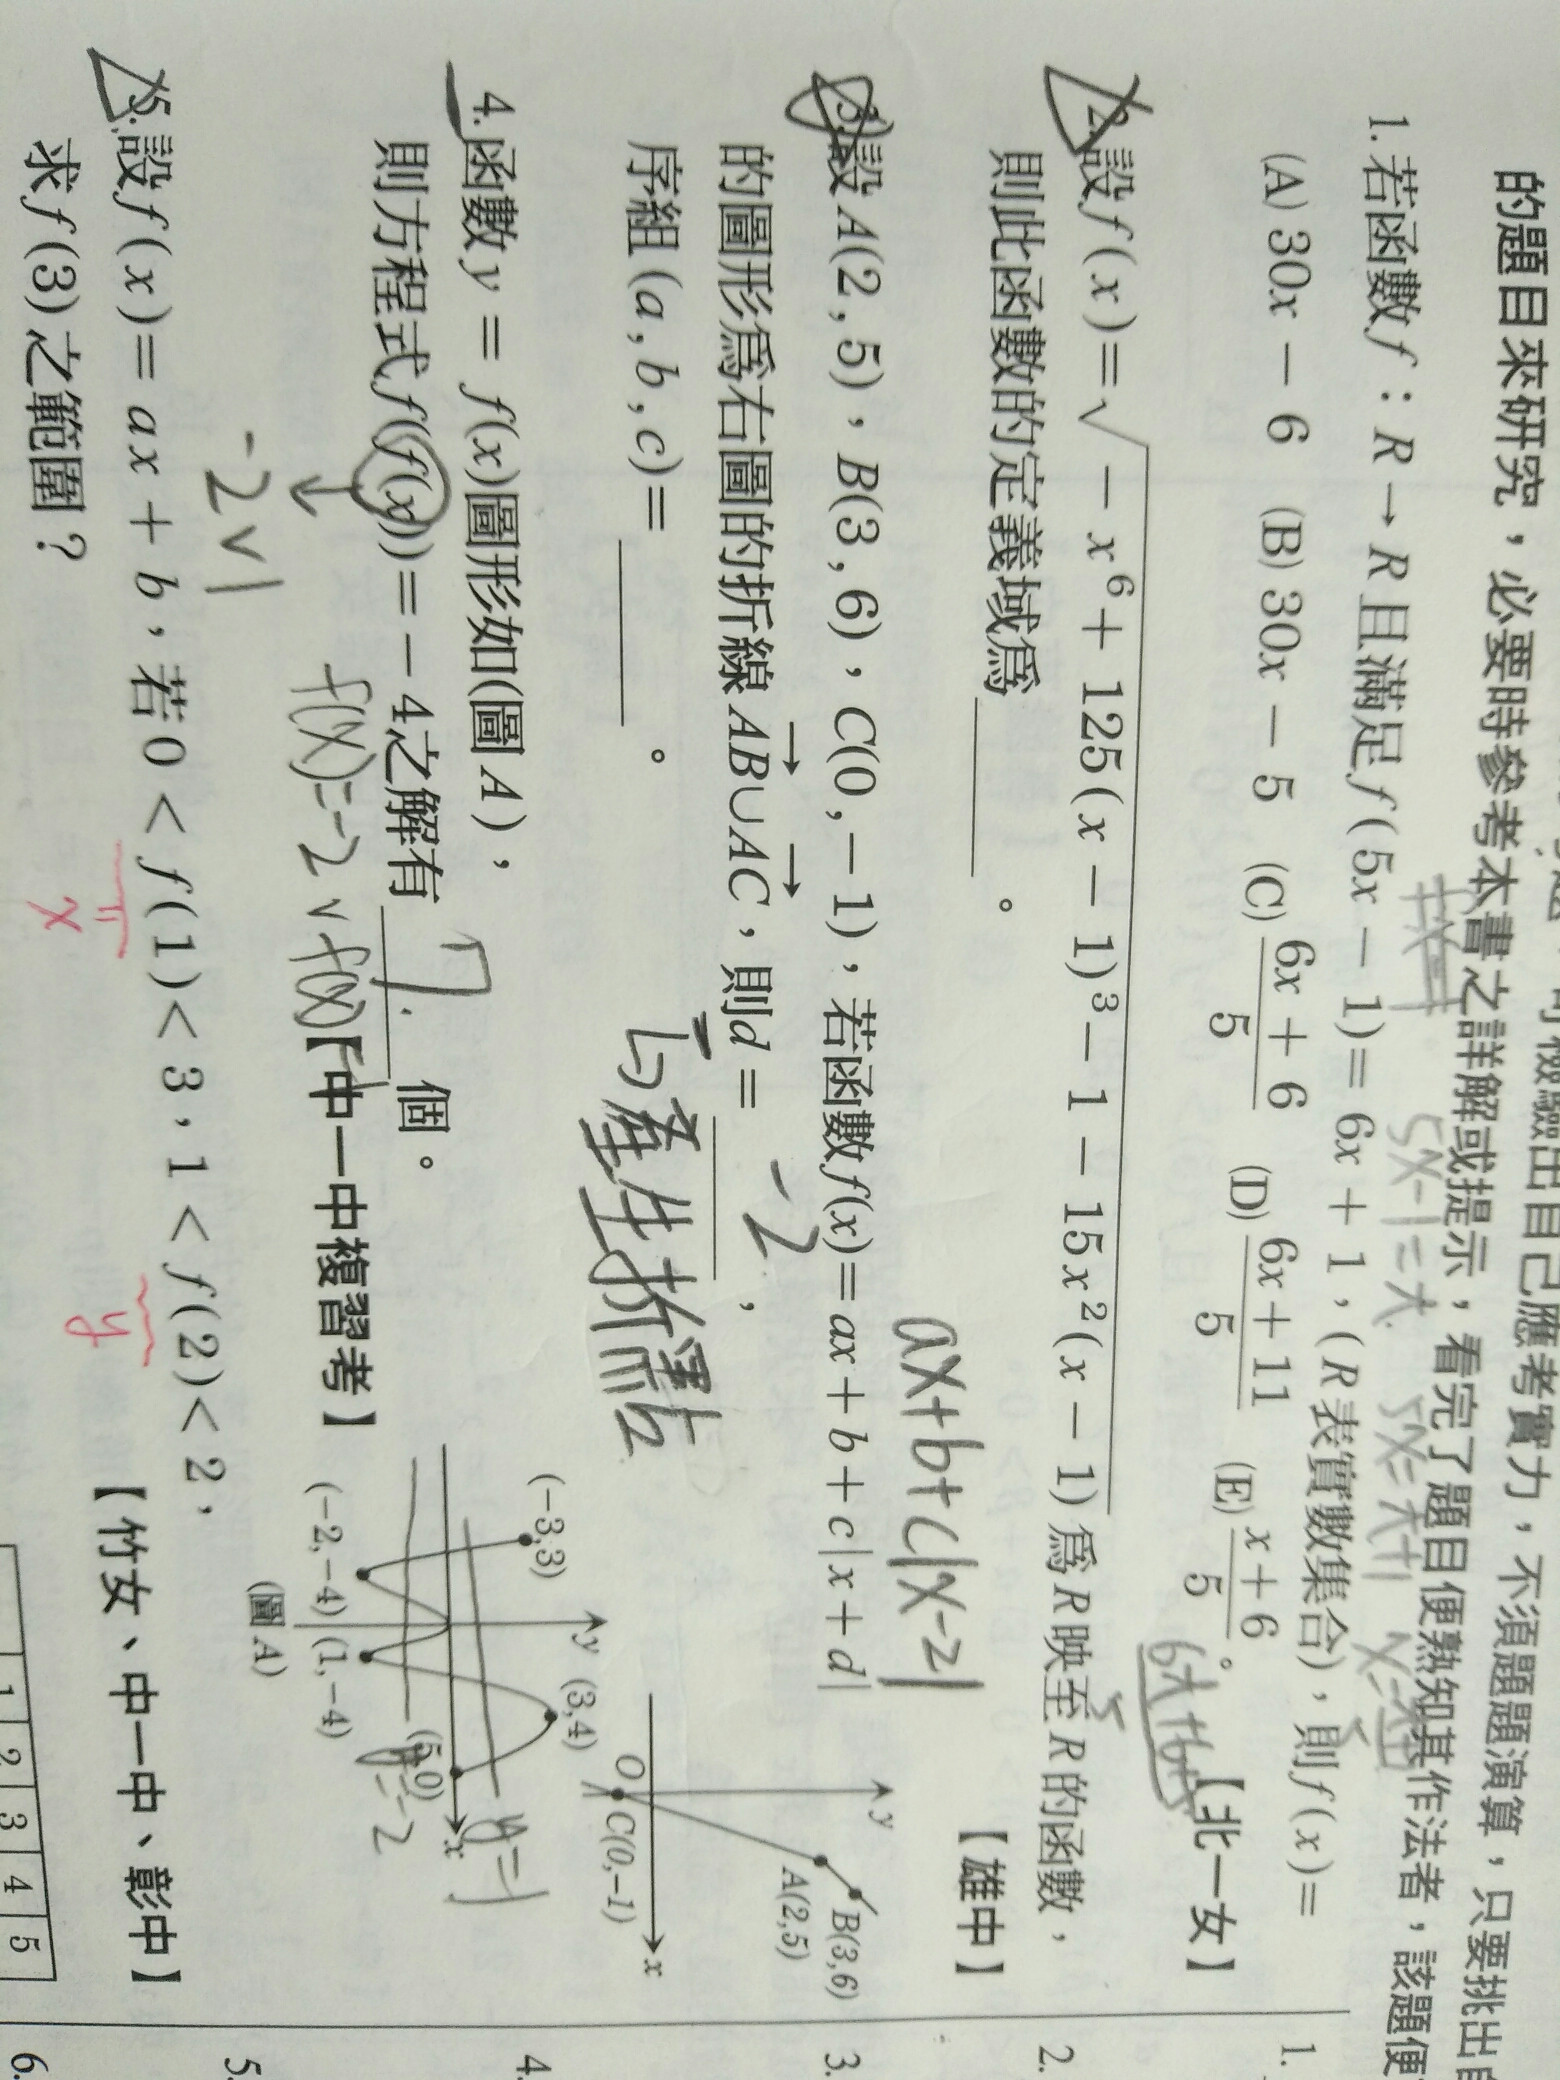 的題目來研究，必要時參考本書之詳解或提示，看完了題目便熟知其作法者，該題便
1.若函數f：R→R且滿足f(5x－1)=6x＋1，(R表實數集合)，則f(x)=
(A)30x－6 (B)30x－5 (C)(6x＋6)/5 (D)(6x＋11)/5 (E)(x＋6)/5。【北一女】
5x-1=t
5x=t+1
2.設f(x)=√(－x⁶＋125(x－1)³－1－15x²(x－1))為R映至R的函數，
則此函數的定義域為＿＿＿。【雄中】
ax+b+c|x-2|
3.設A(2,5)，B(3,6)，C(0,－1)，若函數f(x)=ax＋b＋c|x＋d|
的圖形為右圖的折線AB→∪AC→，則d=＿＿＿，
-2
序組(a,b,c)=＿＿＿。
產生折點
y
B(3,6)
A(2,5)
O
C(0,－1)
x
4.函數y＝f(x)圖形如(圖A)，
則方程式f(f(x))＝－4之解有 7. 個。
【中一中複習考】
-2∨1
f(x)=-2 ∨ f(x)=1
(－3,3)
y
(3,4)
(5,0)
x
(－2,－4)
(1,－4)
(圖A)
y=1
y=-2
5.設f(x)=ax＋b，若0＜f(1)＜3，1＜f(2)＜2，
x
y
求f(3)之範圍？【竹女、中一中、彰中】
1 2 3 4 5
1.
2.
3.
4.
5.
6.